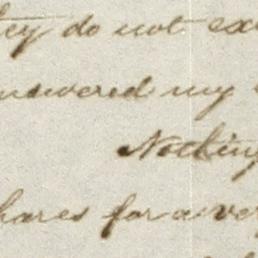 they do not ex
nswered my
Nothing
shares for a ver